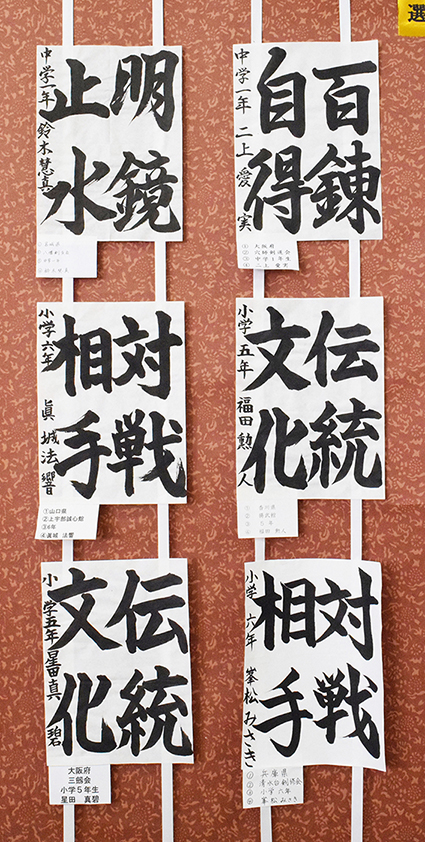 選
百錬
自得
中学一年 二上愛実
① 大阪府
③ 中学1年生
④ 二上 愛実
明鏡
止水
中学一年 鈴木慧真
伝統
文化
小学五年 福田勲人
対戦
相手
小学六年 眞城法響
①山口県
②上宇部誠心館
③6年
④眞城 法響
対戦
相手
小学六年 峯松みさき
① 兵庫県
③ 小学六年
④ 峯松みさき
伝統
文化
小学五年 星田真碧
大阪府
三劔会
小学5年生
星田 真碧